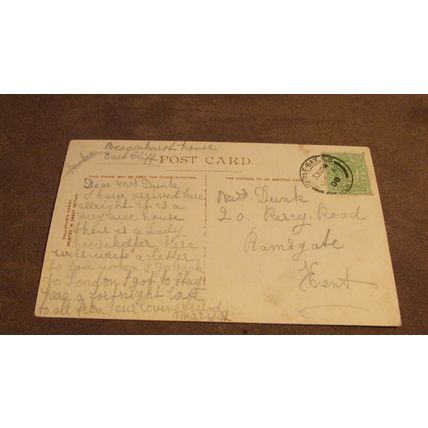 Beaconhurst House
East Cliff
POST CARD.
THIS SPACE MAY BE USED FOR COMMUNICATION.
THE ADDRESS TO BE WRITTEN HERE.
Dear Mrs Dunk
I have arrived here
allright it is a
very nice house
their is a Lady
housekeeper here
will write a letter
to you when I go back
to London I got to stay
here a fortnight love
to all from your loving friend
Mrs Dunk
20. Percy Road
Ramsgate
Kent